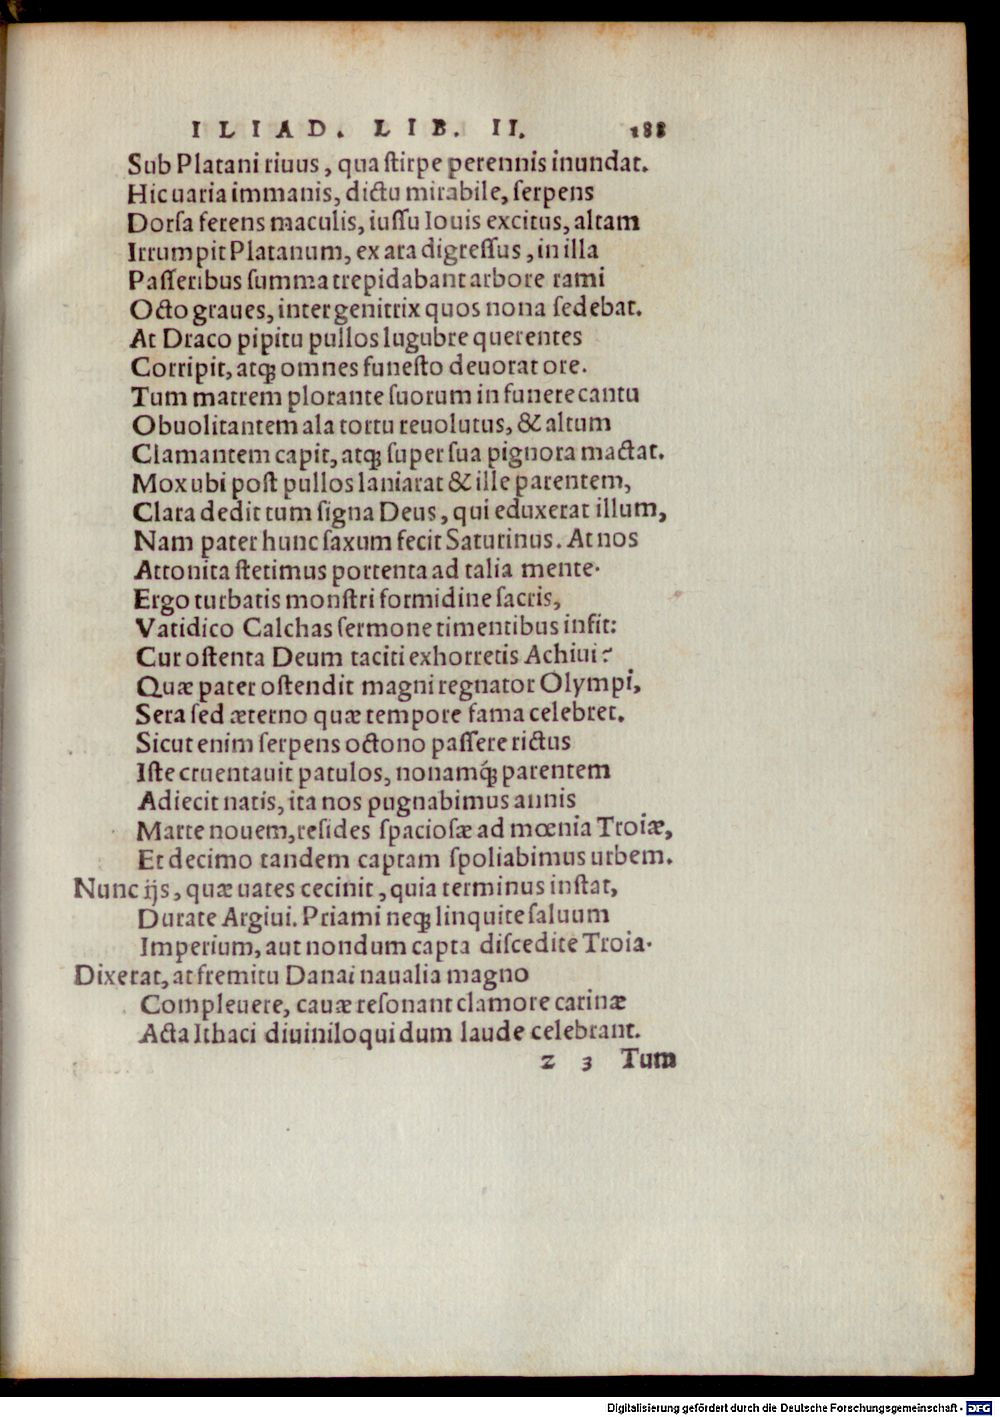 ILIAD. LIB. II. 188
Sub Platani riuus, qua stirpe perennis inundat.
Hic uaria immanis, dictu mirabile, serpens
Dorsa ferens maculis, iussu Iouis excitus, altam
Irrumpit Platanum, ex ara digressus, in illa
Passeribus summa trepidabant arbore rami
Octo graues, inter genitrix quos nona sedebat.
At Draco pipitu pullos lugubre querentes
Corripit, atq; omnes funesto deuorat ore.
Tum matrem plorante suorum in funere cantu
Obuolitantem ala tortu reuolutus, & altum
Clamantem capit, atq; super sua pignora mactat.
Mox ubi post pullos laniarat & ille parentem,
Clara dedit tum signa Deus, qui eduxerat illum,
Nam pater hunc saxum fecit Saturinus. At nos
Attonita stetimus portenta ad talia mente.
Ergo turbatis monstri formidine sacris,
Vatidico Calchas sermone timentibus infit:
Cur ostenta Deum taciti exhorretis Achiui?
Quæ pater ostendit magni regnator Olympi,
Sera sed æterno quæ tempore fama celebret.
Sicut enim serpens octono passere rictus
Iste cruentauit patulos, nonamq́; parentem
Adiecit natis, ita nos pugnabimus annis
Marte nouem, resides spaciosæ ad mœnia Troiæ,
Et decimo tandem captam spoliabimus urbem.
Nunc ijs, quæ uates cecinit, quia terminus instat,
Durate Argiui. Priami neq; linquite saluum
Imperium, aut nondum capta discedite Troia.
Dixerat, at fremitu Danai naualia magno
Compleuere, cauæ resonant clamore carinæ
Acta Ithaci diuiniloqui dum laude celebrant.
z 3 Tum
Digitalisierung gefördert durch die Deutsche Forschungsgemeinschaft - DFG